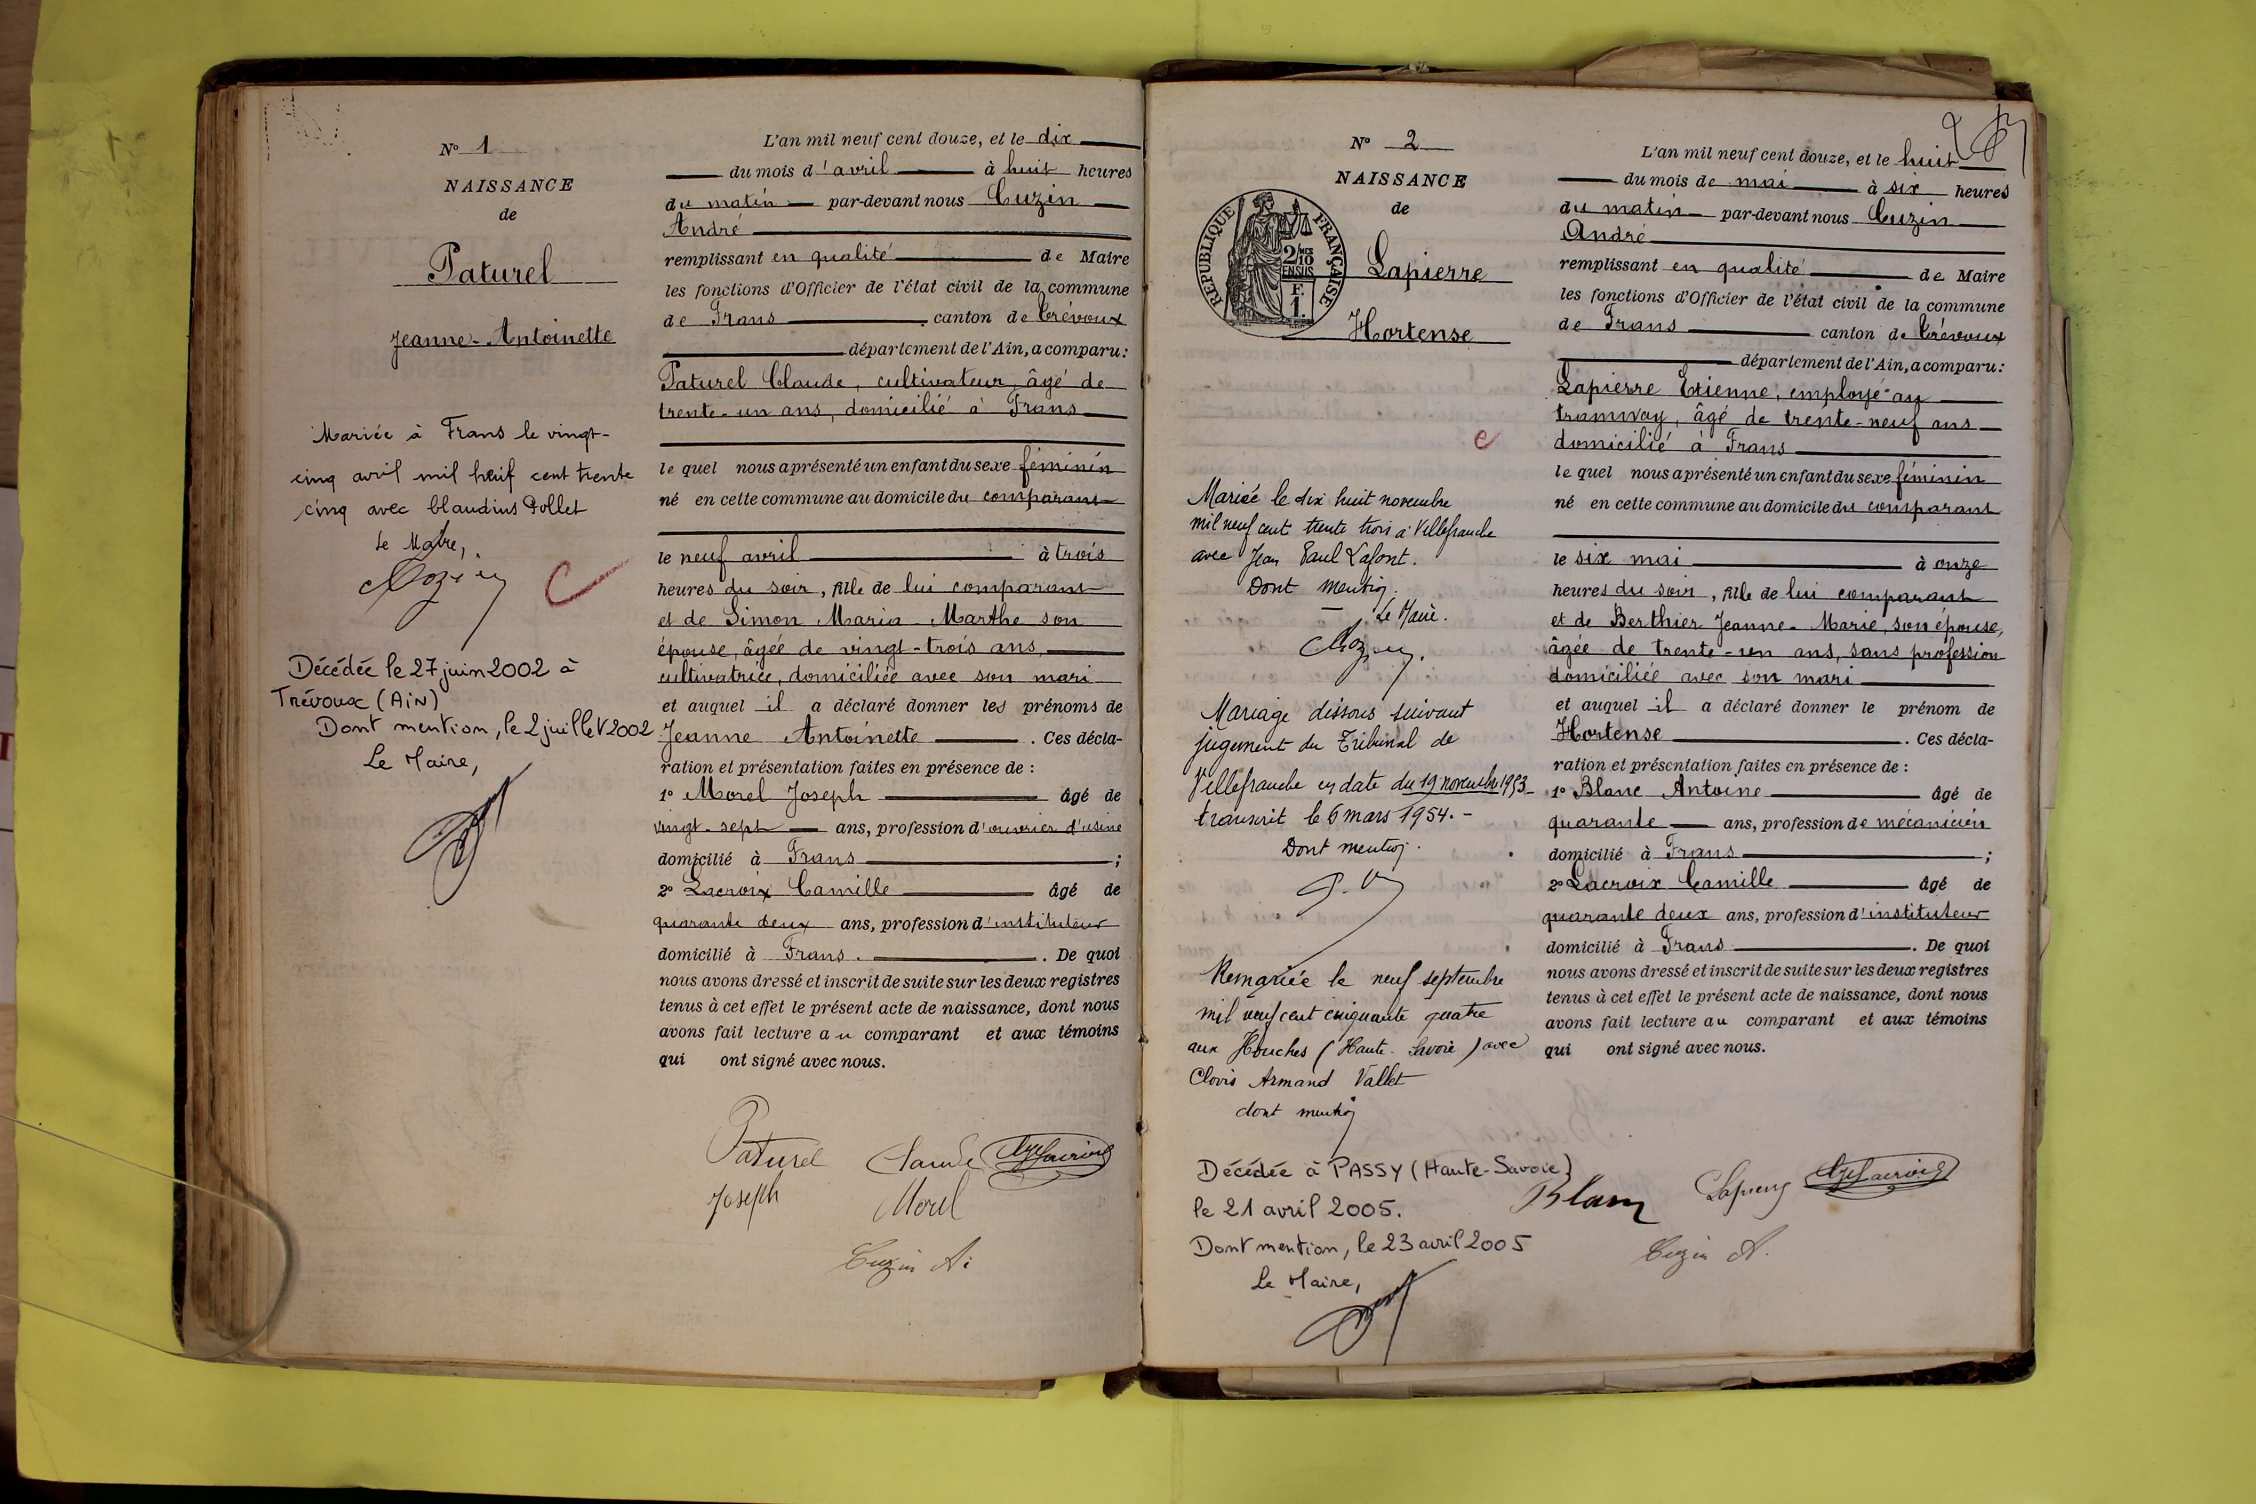 N° 1
NAISSANCE
de
Paturel
Jeanne-Antoinette
Mariée à Frans le vingt-
cinq avril mil neuf cent trente
cinq avec Claudius Pollet
Le Maire,
Décédée le 27 juin 2002 à
Trévoux (AiN)
Dont mention, le 2 juillet 2002
Le Maire,
L'an mil neuf cent douze, et le dix
du mois d'avril à huit heures
du matin par-devant nous Cuzin
André
remplissant en qualité de Maire
les fonctions d'Officier de l'état civil de la commune
de Frans canton de Trévoux
département de l'Ain, a comparu:
Paturel Claude, cultivateur, âgé de
trente-un ans, domicilié à Frans
le quel nous a présenté un enfant du sexe féminin
né en cette commune au domicile du comparant
le neuf avril à trois
heures du soir, fille de lui comparant
et de Simon Maria-Marthe son
épouse, âgée de vingt-trois ans,
cultivatrice, domiciliée avec son mari
et auquel il a déclaré donner les prénoms de
Jeanne Antoinette. Ces décla-
ration et présentation faites en présence de :
1° Morel Joseph âgé de
vingt-sept ans, profession d'ouvrier d'usine
domicilié à Frans ;
2° Lacroix Camille âgé de
quarante deux ans, profession d'instituteur
domicilié à Frans. De quoi
nous avons dressé et inscrit de suite sur les deux registres
tenus à cet effet le présent acte de naissance, dont nous
avons fait lecture au comparant et aux témoins
qui ont signé avec nous.
Paturel Claude
Joseph Morel
Cuzin A
N° 2
NAISSANCE
de
RÉPUBLIQUE FRANÇAISE
2/10
EN SUS
F.
1.
Lapierre
Hortense
Mariée le dix huit novembre
mil neuf cent trente trois à Villefranche
avec Jean Paul Lafont.
Dont mention.
Le Maire.
Mariage dissous suivant
jugement du Tribunal de
Villefranche en date du 19 novembre 1953
transcrit le 6 mars 1954.-
Dont mention.
Remariée le neuf septembre
mil neuf cent cinquante quatre
aux Houches (Haute-Savoie) avec
Clovis Armand Vallet
dont mention
Décédée à PASSY (Haute-Savoie)
le 21 avril 2005.
Dont mention, le 23 avril 2005
Le Maire,
L'an mil neuf cent douze, et le huit
du mois de mai à six heures
du matin par-devant nous Cuzin
André
remplissant en qualité de Maire
les fonctions d'Officier de l'état civil de la commune
de Frans canton de Trévoux
département de l'Ain, a comparu:
Lapierre Etienne, employé au
tramway, âgé de trente-neuf ans
domicilié à Frans
le quel nous a présenté un enfant du sexe féminin
né en cette commune au domicile du comparant
le six mai à onze
heures du soir, fille de lui comparant
et de Berthier Jeanne-Marie, son épouse,
âgée de trente-un ans, sans profession
domiciliée avec son mari
et auquel il a déclaré donner le prénom de
Hortense. Ces décla-
ration et présentation faites en présence de :
1° Blanc Antoine âgé de
quarante ans, profession de mécanicien
domicilié à Frans ;
2° Lacroix Camille âgé de
quarante deux ans, profession d'instituteur
domicilié à Frans. De quoi
nous avons dressé et inscrit de suite sur les deux registres
tenus à cet effet le présent acte de naissance, dont nous
avons fait lecture au comparant et aux témoins
qui ont signé avec nous.
Blanc Lapierre
Cuzin A.